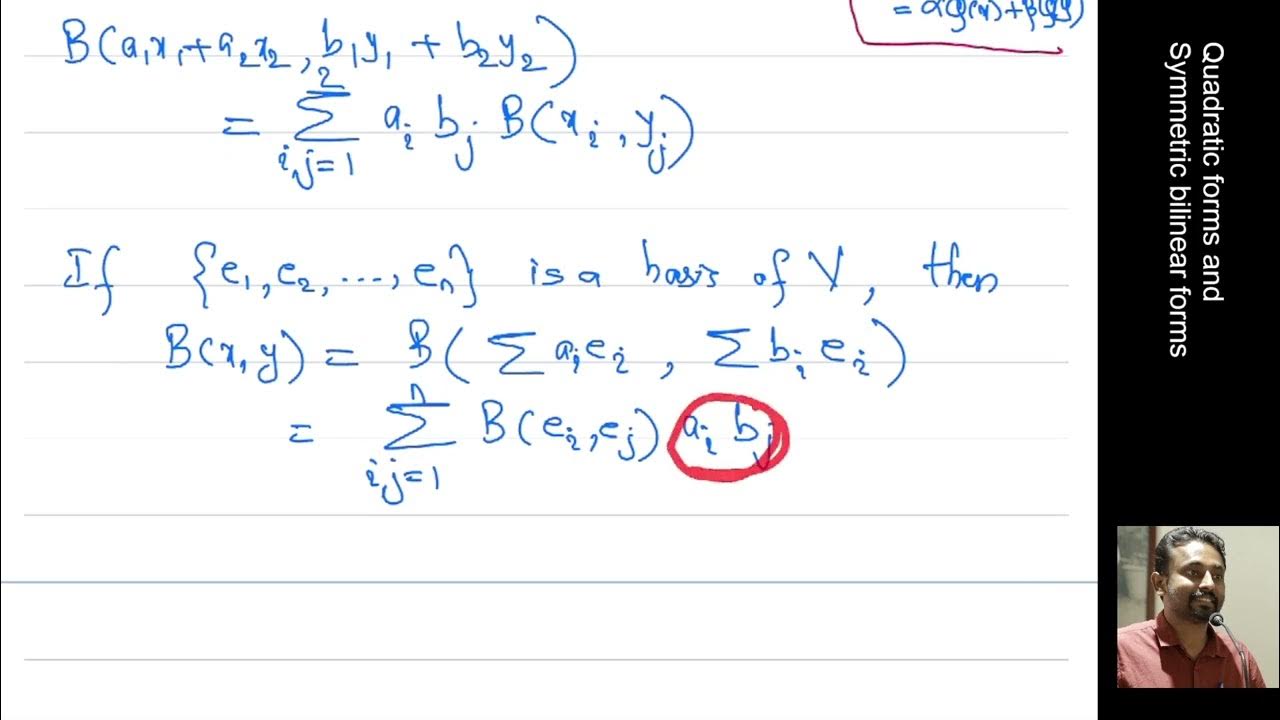 = αφ(x)+βφ(y)
B(a₁x₁+a₂x₂, b₁y₁ + b₂y₂)
= ∑²ᵢ,ⱼ₌₁ aᵢ bⱼ B(xᵢ, yⱼ)
If {e₁, e₂, ..., eₙ} is a basis of V, then
B(x, y) = B(∑ aᵢeᵢ, ∑ bᵢ eᵢ)
= ∑ⁿᵢ,ⱼ₌₁ B(eᵢ, eⱼ) aᵢ bⱼ
Quadratic forms and
Symmetric bilinear forms